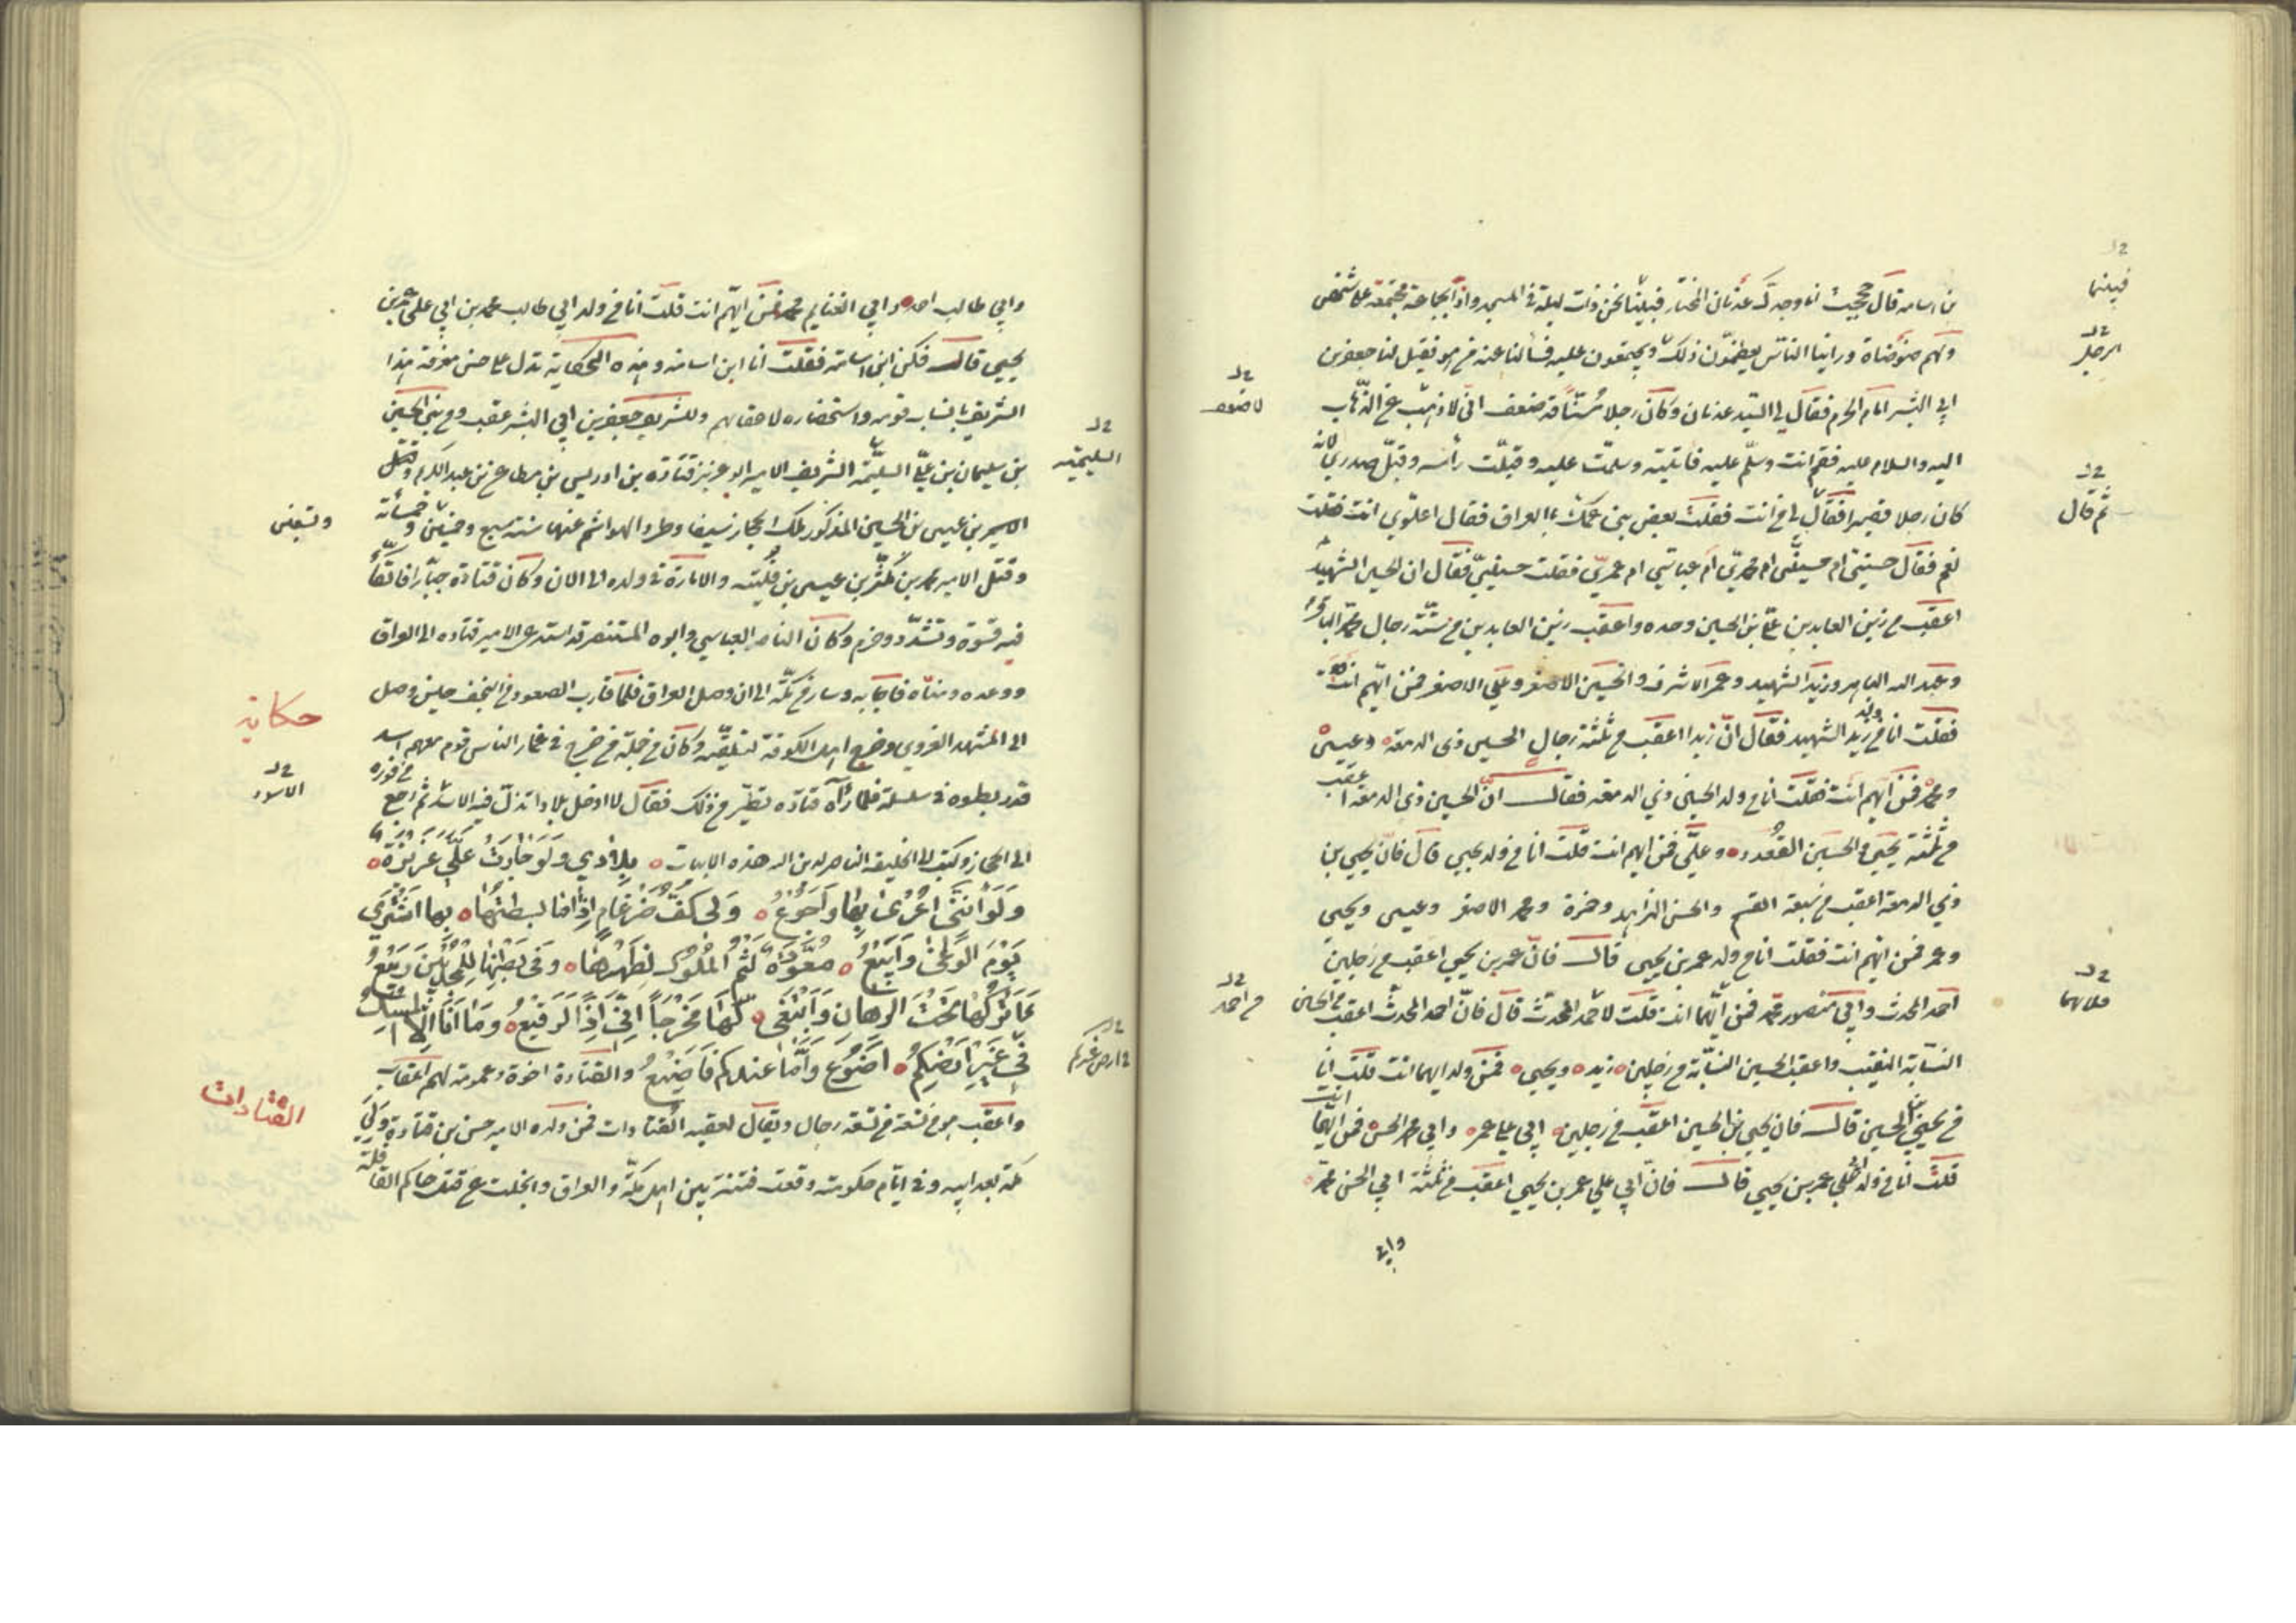 بن اسامه قال حججت انا وجدك عدنان المختار فبيننا نحن ذات ليلة في المسجد واذا بجماعة مجتمعة على شخص
ولهم ضوضاة وراينا الناس يعظمون ذلك ويجتمعون عليه فسالنا عنه من هو فقيل لنا جعفر بن
ابي البشر امام الحرم فقال لي السيد عدنان وكان رجلا مسنا قد ضعف اني لا ذهب عن الذهاب
اليه والسلام عليه فقم انت وسلم عليه فاتيته وسلمت عليه وقبلت راسه وقبل صدري لانه
كان رجلا قصيرا فقال لي من انت فقلت بعض بني عمك بالعراق فقال اعلوي انت فقلت
نعم فقال حسني ام حسيني ام محمدي ام عباسي ام عمري فقلت حسيني فقال ان الحسين الشهيد
اعقب من زين العابدين علي بن الحسين وحده واعقب زين العابدين من ستة رجال محمد الباقر
وعبد الله الباهر وزيد الشهيد وعمر الاشرف والحسين الاصغر وعلي الاصغر فمن ايهم انت
فقلت انا من ولد زيد الشهيد فقال ان زيدا اعقب من ثلثة رجال الحسين ذي الدمعة وعيسى
ومحمد فمن ايهم انت فقلت انا من ولد الحسين ذي الدمعه فقال ان الحسين ذي الدمعه اعقب
من ثلثة يحيى والحسين القعدد وعلي فمن ايهم انت قلت انا من ولد يحيى قال فان يحيى بن
ذي الدمعة اعقب من سبعة القسم والحسن الزاهد وحمزة ومحمد الاصغر وعيسى ويحيى
وعمر فمن ايهم انت فقلت انا من ولد عمر بن يحيى قال فان عمر بن يحيى اعقب من رجلين
احمد المحدث وابي منصور محمد فمن ايهما انت قلت لاحمد المحدث قال فان احمد المحدث اعقب من الحسين
النسابة النقيب واعقب الحسين النسابة من رجلين زيد ويحيى فمن ولد ايهما انت قلت انا
من يحيى بن الحسين قال فان يحيى بن الحسين اعقب من رجلين ابي علي عمر وابي محمد الحسن فمن ايهما انت
قلت انا من ولد ابي علي عمر بن يحيى قال فان ابي علي عمر بن يحيى اعقب من ثلثة ابي الحسن محمد
وابي
فبينما
الرجل
ثم قال
كلاهما
لا ضعف
من احمد
وابي طالب احمد وابي الغنايم محمد فمن ايهم انت قلت انا من ولد ابي طالب محمد بن ابي علي عمر بن
يحيى قال فكن ابن اسامة فقلت انا ابن اسامه وهذه الحكاية تدل على حسن معرفة هذا
الشريف بانساب قومه واستحضاره لاعقابهم وللشريف جعفر بن ابي البشر عقب ومن بني الحسين
بن سليمان بن علي السليمة الشريف الامير ابو عزيز قتادة بن ادريس بن مطاعن بن عبد الكريم وقتل
الامير بن عيسى بن الحسين المذكور ملك الحجاز سيفا وطرد الهواشم عنها سنة سبع وخمسين وخمسمأئة
وقتل الامير محمد بن مكثر بن عيسى بن فليته والامارة في ولده الى الان وكان قتادة جبارا فاتكا
فيه قسوة وتشدد وحزم وكان الناصر العباسي وابوه المستنصر قد استدعى الامير قتاده الى العراق
ووعده ومناه فاجابه وسار من مكة الى ان وصل العراق فلما قارب الصعود من النجف حين وصل
الى المشهد الغروي وخرج اهل الكوفة لتلقيه وكان من جملة من خرج في غمار الناس قوم معهم اسد
قد ربطوه في سلسلة فلما رآه قتاده تطير من ذلك فقال لا ادخل بلادا تذل فيه الاسد ثم رجع من فوره
الى الحجاز وكتب الى الخليفة الناصر لدين الله هذه الابيات بلادي ولو جارت علي عزيزة
ولو انني اعرى بها واجوع ولي كف ضرغام اذا ما بسطتها بها اشتري
يوم الوغى وابيع معودة لثم الملوك لظهرها وفي بطنها للمجدبين ربيع
ءاتركها تحت الرهان وابتغي لها مخرجا اني اذا لرقيع وما انا الا المسك
في غير ارضكم اضوع واما عندكم فاضيع والقتادة اخوة وعمومة لهم اعقاب
واعقب هو من تسعة من تسعة رجال ويقال لعقبه القتادات فمن ولده الامير حسن بن قتادة ولي
مكة بعد ابيه وفي ايام حكومته وقعت فتنة بين اهل مكة والعراق وانجلت عن قتل حاكم القافلة
السليمية
في ارض غيركم
وتسعين
حكاية
الاسود
القتادات